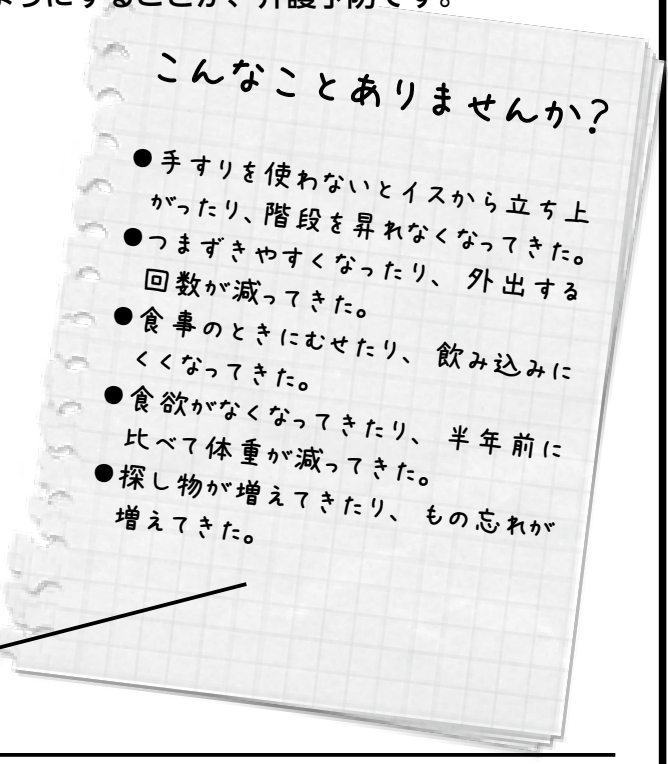 ようにすることが、介護予防です。
こんなことありませんか?
●手すりを使わないとイスから立ち上
がったり、階段を昇れなくなってきた。
●つまずきやすくなったり、外出する
回数が減ってきた。
●食事のときにむせたり、飲み込みに
くくなってきた。
●食欲がなくなってきたり、半年前に
比べて体重が減ってきた。
●探し物が増えてきたり、もの忘れが
増えてきた。